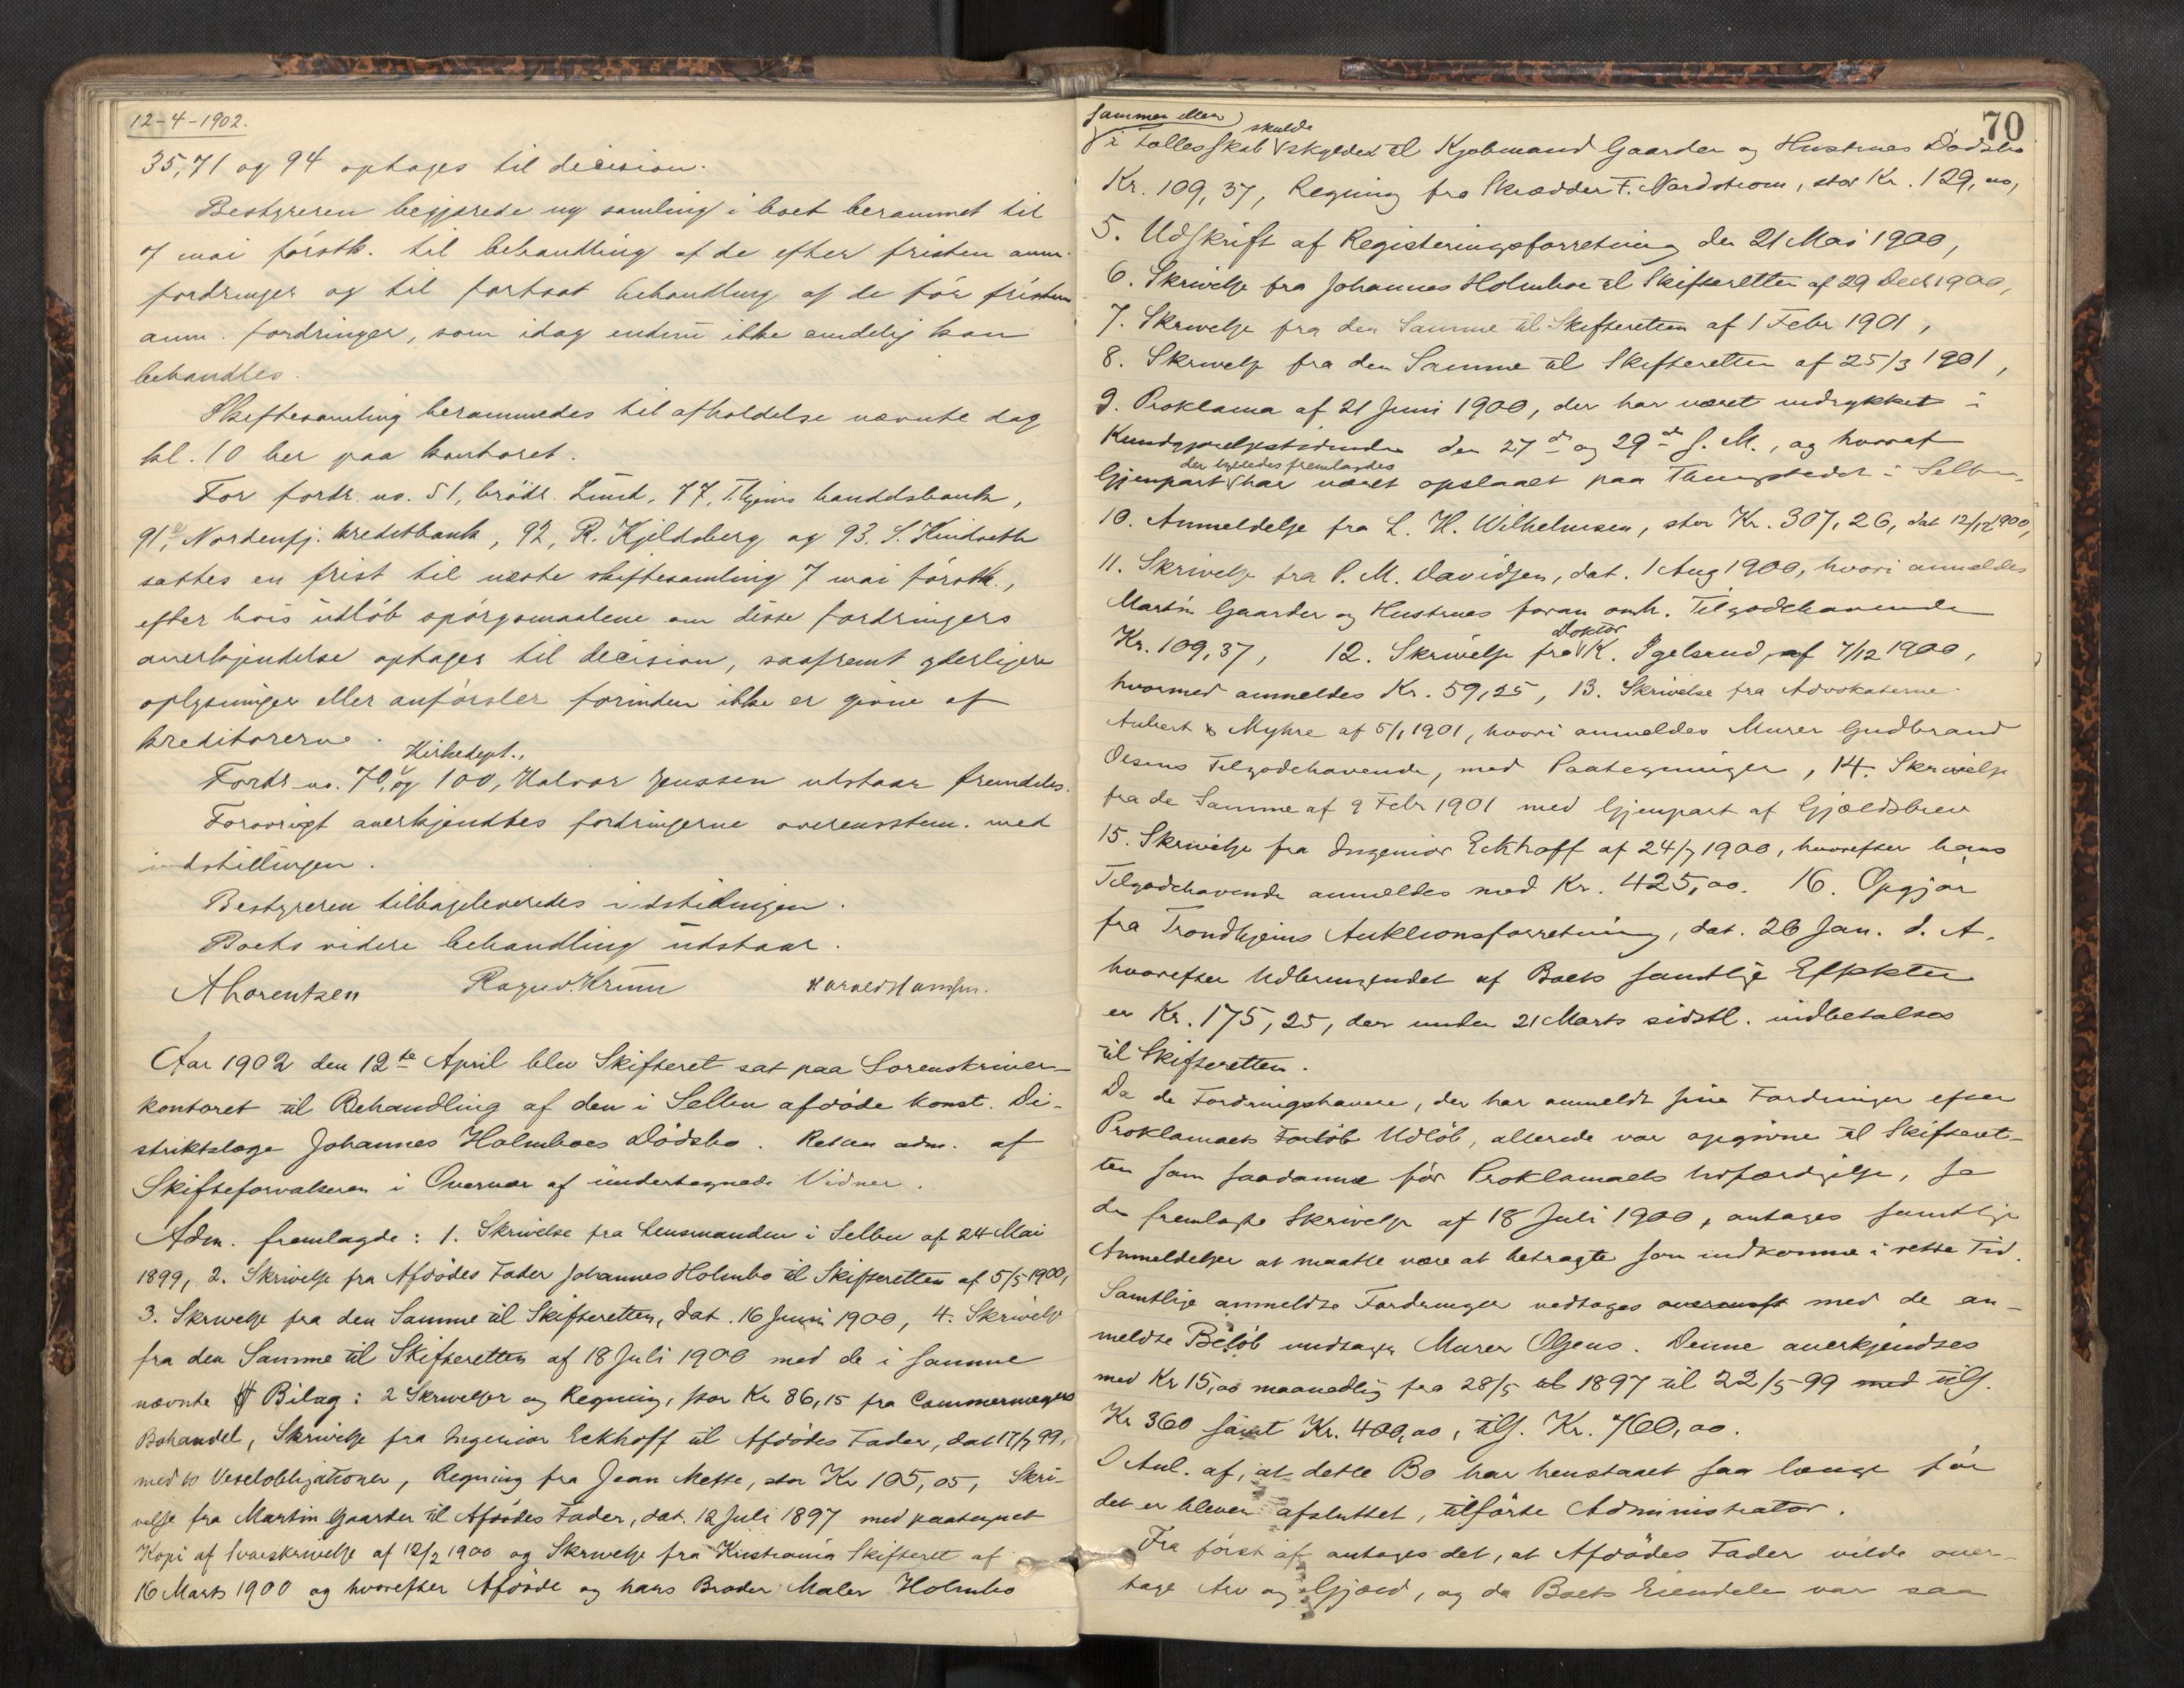 12-4-1902.
35, 71 og 94 optages til decision.
Bestyreren begjærede ny samling i boet berammet til
7 mai førstk. til behandling af de efter fristen anm.
fordringer og til fortsat behandling af de før fristen
anm. fordringer, som idag endnu ikke endelig kan
behandles.
Skiftesamling berammedes til afholdelse nævnte dag
kl. 10 her paa kontoret.
For fordr. no. 51, brödr. Lund, 77, Thjems handelsbank,
91, Nordenfj. kreditbank, 92, R. Kjeldsberg og 93. S. Hindseth
sattes en frist til næste skiftesamling 7 mai førstk.,
efter hvis udløb spørgsmaalene om disse fordringers
anerkjendelse optages til decision, saafremt yderligere
oplysninger eller anførsler forinden ikke er givne af
kreditorerne.
Kirkedept.,
Fordr. no. 70, og 100, Halvor Jenssen udstaar fremdeles.
Forøvrigt anerkjendtes fordringerne overensstem. med
indstillingen.
Bestyreren tilbageleveredes indstillingen.
Boets videre behandling udstaar.
A Lorentzen Ragnv. Krum Harald Hansen.
Aar 1902 den 12te April blev Skifteret sat paa Sorenskriver-
kontoret til Behandling af den i Selbu afdøde konst. Di-
striktslæge Johannes Holmboes Dødsbo. Retten adm. af
Skifteforvalteren i Overvær af undertegnede Vidner.
Adm. fremlagde: 1. Skrivelse fra Lensmanden i Selbu af 24 Mai
1899, 2. Skrivelse fra Afdødes Fader Johannes Holmbo til Skifteretten af 5/5 1900,
3. Skrivelse fra den Samme til Skifteretten, dat. 16 Juni 1900, 4. Skrivelse
fra den Samme til Skifteretten af 18 Juli 1900 med de i samme
nævnte Bilag: 2 Skrivelser og Regning, stor Kr 86,15 fra Cammermeyers
Boghandel, Skrivelse fra Ingeniør Eckhoff til Afdødes Fader, dat 17/7 99,
med to Vexelobligationer, Regning fra Jean Mette, stor Kr 105,05, Skri-
velse fra Martin Gaarder til Afdødes Fader, dat. 12 Juli 1897 med paategnet
Kopi af Svarskrivelse af 12/2 1900 og Skrivelse fra Kristiania Skifteret af
16 Marts 1900 og hvorefter Afdøde og hans Broder Maler Holmbo
70
sammen
skulde
i Fællesskab skyldes til Kjøbmand Gaarder og Hustrues Dødsbo
Kr. 109,37, Regning fra Skrædder F. Nordstrom, stor Kr. 129,00,
5. Udskrift af Registeringsforretning den 21 Mai 1900,
6. Skrivelse fra Johannes Holmboe til Skifteretten af 29 Decb 1900,
7. Skrivelse fra den Samme til Skifteretten af 1 Febr 1901,
8. Skrivelse fra den Samme til Skifteretten af 25/3 1901,
9. Proklama af 21 Juni 1900, der har været indrykket i
Kundgjørelsestidende den 27de og 29de s. M., og hvoraf
der ligeledes fremlagdes
Gjenpart har været opslaaet paa Thingstedet i Selbu
10. Anmeldelse fra L. H. Wilhelmsen, stor Kr. 307,26, dat 12/12 1900,
11. Skrivelse fra P. M. Davidsen, dat. 1 Aug 1900, hvori anmeldes
Martin Gaarder og Hustrues foran omh. Tilgodehavende
Doktor
Kr. 109,37, 12. Skrivelse fra K. Igelsrud, af 7/12 1900,
hvormed anmeldes Kr. 59,25, 13. Skrivelse fra Advokaterne
Aubert & Myhre af 5/1 1901, hvori anmeldes Murer Gudbrand
Olsens Tilgodehavende, med Paategninger, 14. Skrivelse
fra de Samme af 9 Febr 1901 med Gjenpart af Gjældsbrev
15. Skrivelse fra Ingeniør Eckhoff af 24/7 1900, hvorefter hans
Tilgodehavende anmeldes med Kr. 425,00. 16. Opgjør
fra Trondhjems Auktionsforretning, dat. 26 Jan. d. A.
hvorefter Udbringendet af Boets samtlige Effekter
er Kr. 175,25, der under 21 Marts sidstl. indbetaltes
til Skifteretten.
Da de Fordringshavere, der har anmeldt sine Fordringer efter
Proklamaets Forløb Udløb, allerede var opgivne til Skifteret-
ten som saadanne før Proklamaets Udfærdigelse, se
den fremlagte Skrivelse af 18 Juli 1900, antages samtlige
Anmeldelser at maatte være at betragte som indkomne i rette Tid.
Samtlige anmeldte Fordringer vedtoges overensst med de an-
meldte Beløb undtagen Murer Olsens. Denne anerkjendtes
med Kr 15,00 maanedlig fra 28/5 1897 til 22/5-99 med tils.
Kr 360 samt Kr. 400,00, tils. Kr. 760,00.
I Anl. af, at dette Bo har henstaaet saa længe før
det er bleven afsluttet, tilførte Administrator.
Fra først af antoges det, at Afdødes Fader vilde over-
tage Arv og Gjæld, og da Boets Eiendele var saa